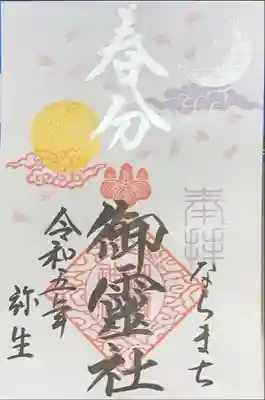 春分
奉拝
ならまち
御霊社
令和五年
弥生